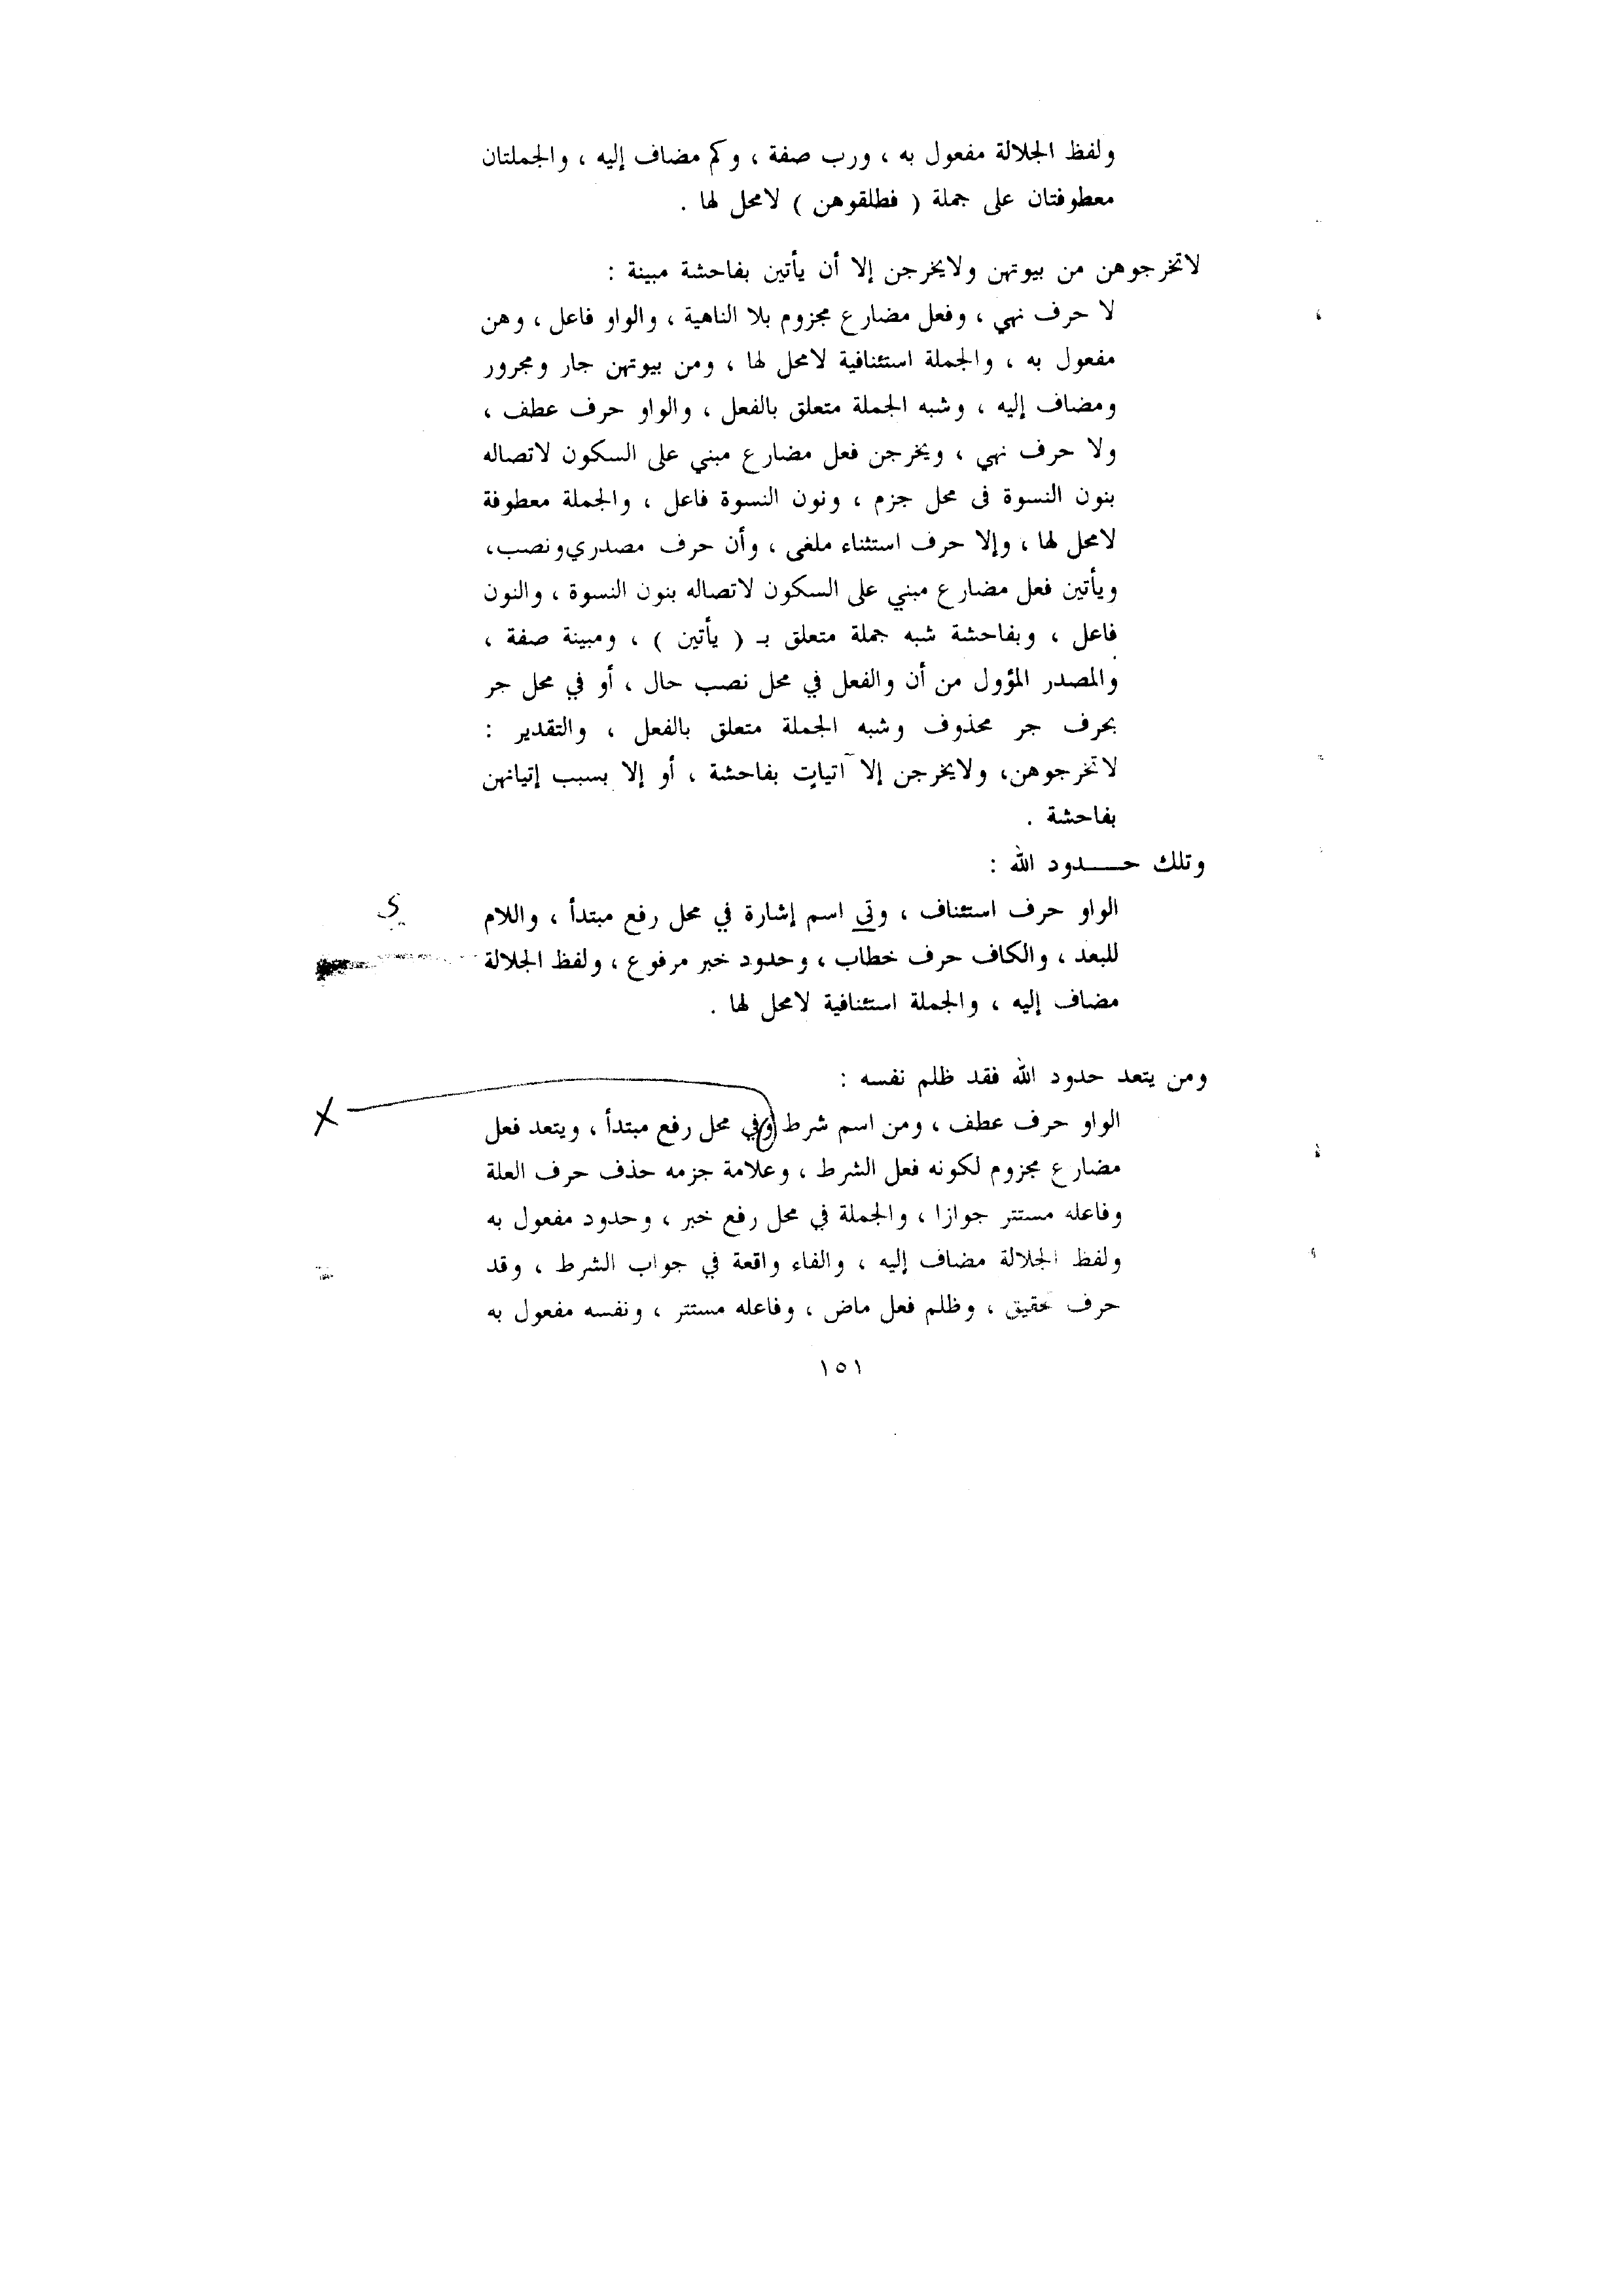 ولفظ الجلالة مفعول به ، ورب صفة ، وكم مضاف إليه ، والجملتان
معطوفتان على جملة ( فطلقوهن ) لامحل لها .
لاتخرجوهن من بيوتهن ولايخرجن إلا أن يأتين بفاحشة مبينة :
لا حرف نهي ، وفعل مضارع مجزوم بلا الناهية ، والواو فاعل ، وهن
مفعول به ، والجملة استئنافية لامحل لها ، ومن بيوتهن جار ومجرور
ومضاف إليه ، وشبه الجملة متعلق بالفعل ، والواو حرف عطف ،
ولا حرف نهي ، ويخرجن فعل مضارع مبني على السكون لاتصاله
بنون النسوة فى محل جزم ، ونون النسوة فاعل ، والجملة معطوفة
لامحل لها ، وإلا حرف استثناء ملغى ، وأن حرف مصدري ونصب،
ويأتين فعل مضارع مبني على السكون لاتصاله بنون النسوة ، والنون
فاعل ، وبفاحشة شبه جملة متعلق بـ ( يأتين ) ، ومبينة صفة ،
والمصدر المؤول من أن والفعل في محل نصب حال ، أو في محل جر
بحرف جر محذوف وشبه الجملة متعلق بالفعل ، والتقدير :
لاتخرجوهن، ولايخرجن إلا آتياتٍ بفاحشة ، أو إلا بسبب إتيانهن
بفاحشة .
وتلك حــــدود الله :
الواو حرف استئناف ، وتى اسم إشارة في محل رفع مبتدأ ، واللام
ي
للبعد ، والكاف حرف خطاب ، وحدود خبر مرفوع ، ولفظ الجلالة
مضاف إليه ، والجملة استئنافية لامحل لها .
ومن يتعد حدود الله فقد ظلم نفسه :
الواو حرف عطف ، ومن اسم شرط وفي محل رفع مبتدأ ، ويتعد فعل
مضارع مجزوم لكونه فعل الشرط ، وعلامة جزمه حذف حرف العلة
وفاعله مستتر جوازا ، والجملة في محل رفع خبر ، وحدود مفعول به
ولفظ الجلالة مضاف إليه ، والفاء واقعة في جواب الشرط ، وقد
حرف تحقيق ، وظلم فعل ماض ، وفاعله مستتر ، ونفسه مفعول به
١٥١